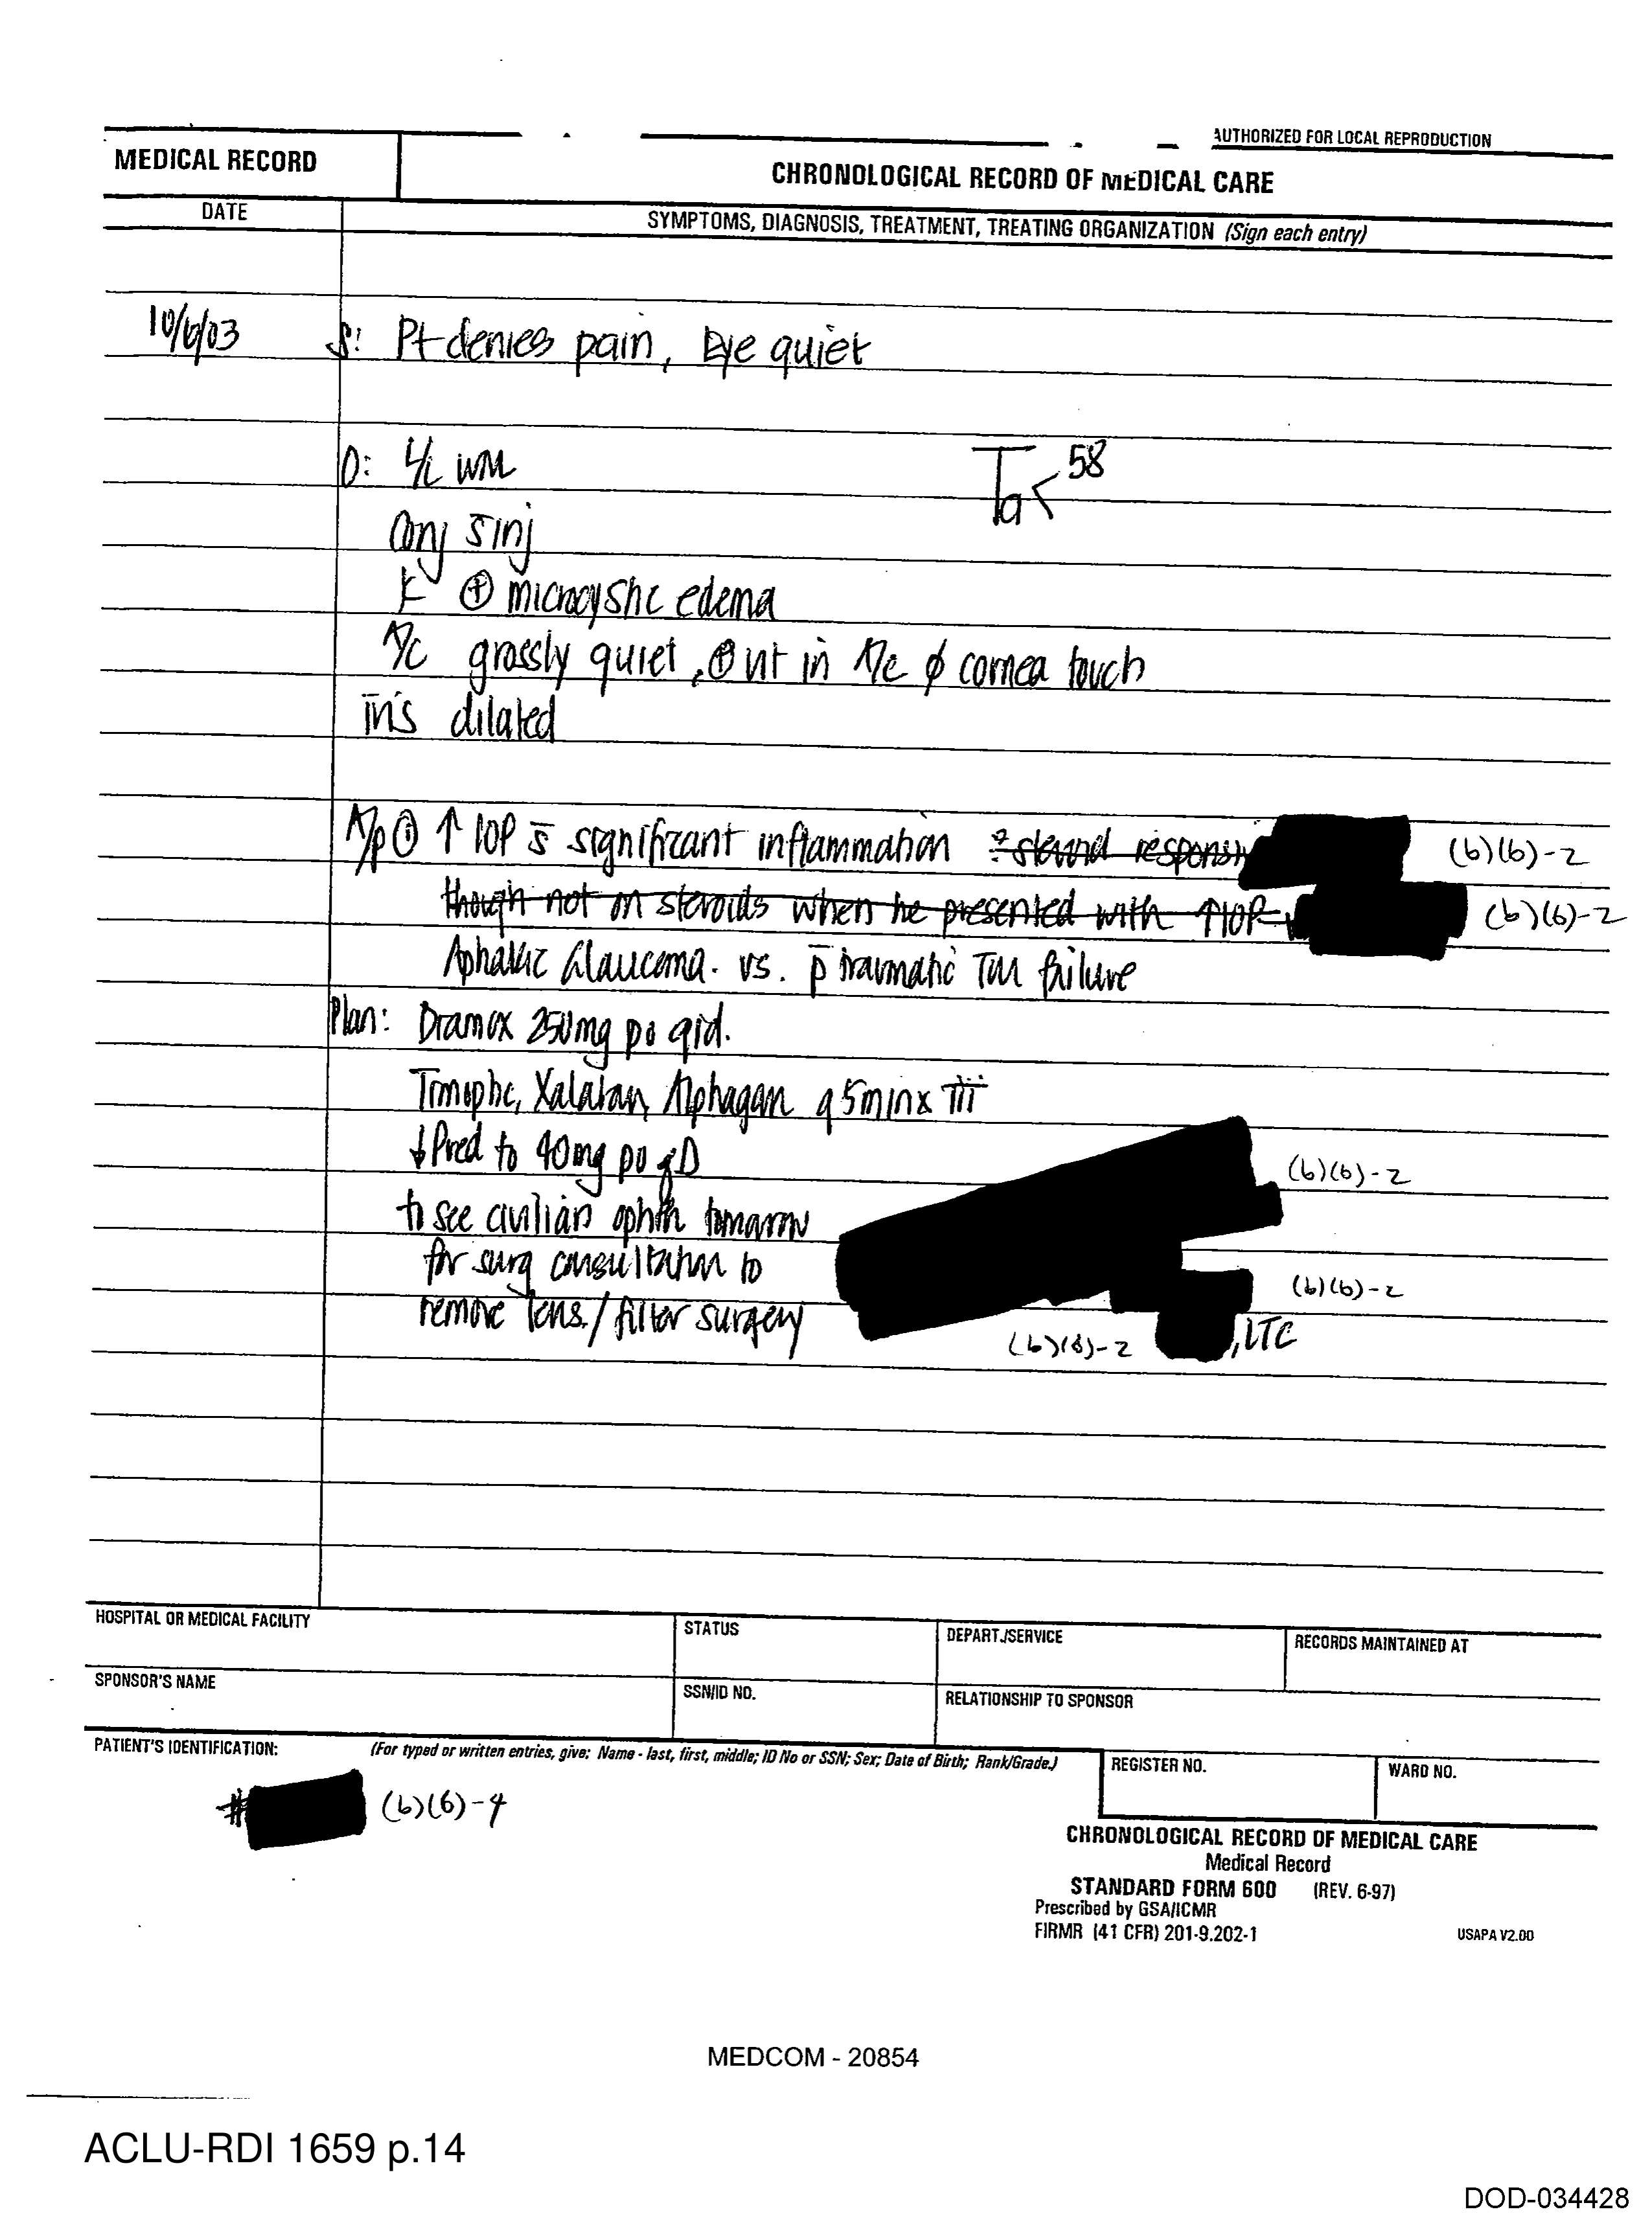 AUTHORIZED FOR LOCAL REPRODUCTION
MEDICAL RECORD
CHRONOLOGICAL RECORD OF MEDICAL CARE
DATE
SYMPTOMS, DIAGNOSIS, TREATMENT, TREATING ORGANIZATION (Sign each entry)
10/6/03 S: Pt denies pain, Eye quiet
O: L/L WNL
Ta < 58
Conj s̄ inj
K ⊕ microcystic edema
A/C grossly quiet, ⊕ in A/C ϕ cornea touch
iris dilated
A/P ① ↑ IOP s̄ significant inflammation ? steroid (b)(6)-2
though not on steroids when he presented with ↑IOP (b)(6)-2
Aphakic Glaucoma. vs. p̄ traumatic TM failure
Plan: Diamox 250mg po qid.
Timoptic, Xalatan, Alphagan q 5min x iii
↓ Pred to 40mg po qD
(b)(6)-2
to see civilian ophth tomorrow
for surg consultation to
(b)(6)-2
remove lens/filter surgery
(b)(6)-2 , LTC
HOSPITAL OR MEDICAL FACILITY
STATUS
DEPART./SERVICE
RECORDS MAINTAINED AT
SPONSOR'S NAME
SSN/ID NO.
RELATIONSHIP TO SPONSOR
PATIENT'S IDENTIFICATION: (For typed or written entries, give: Name - last, first, middle; ID No or SSN; Sex; Date of Birth; Rank/Grade.)
REGISTER NO.
WARD NO.
# (b)(6)-4
CHRONOLOGICAL RECORD OF MEDICAL CARE
Medical Record
STANDARD FORM 600 (REV. 6-97)
Prescribed by GSA/ICMR
FIRMR (41 CFR) 201-9.202-1
USAPA V2.00
MEDCOM - 20854
ACLU-RDI 1659 p.14
DOD-034428